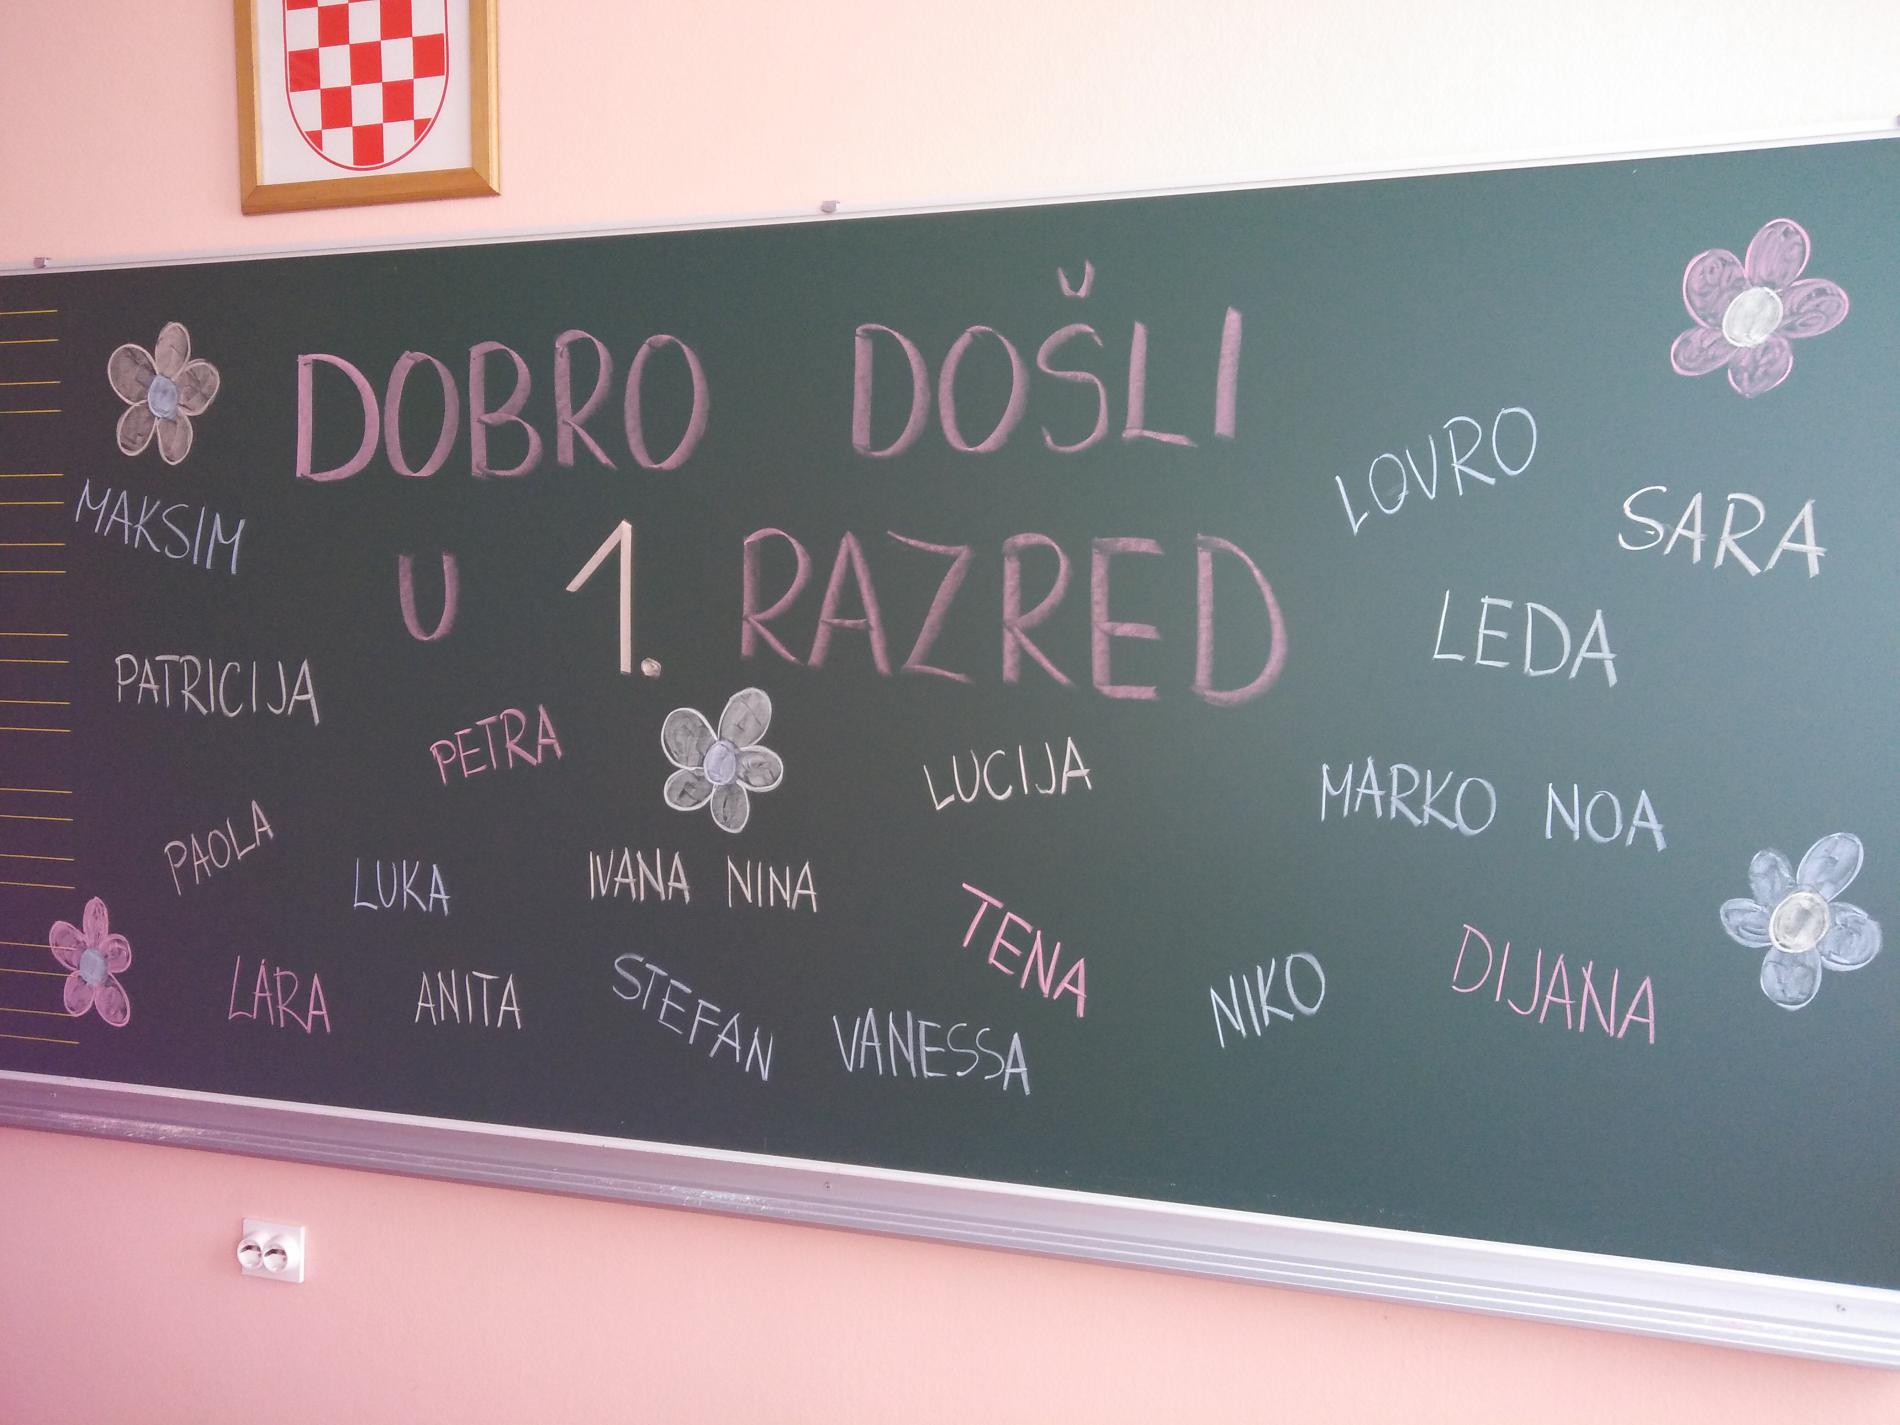 DOBRO DOŠLI
U 1. RAZRED
LOVRO
SARA
MAKSIM
LEDA
PATRICIJA
PETRA
LUCIJA
MARKO NOA
PAOLA
LUKA
IVANA NINA
TENA
DIJANA
LARA
ANITA
STEFAN
VANESSA
NIKO